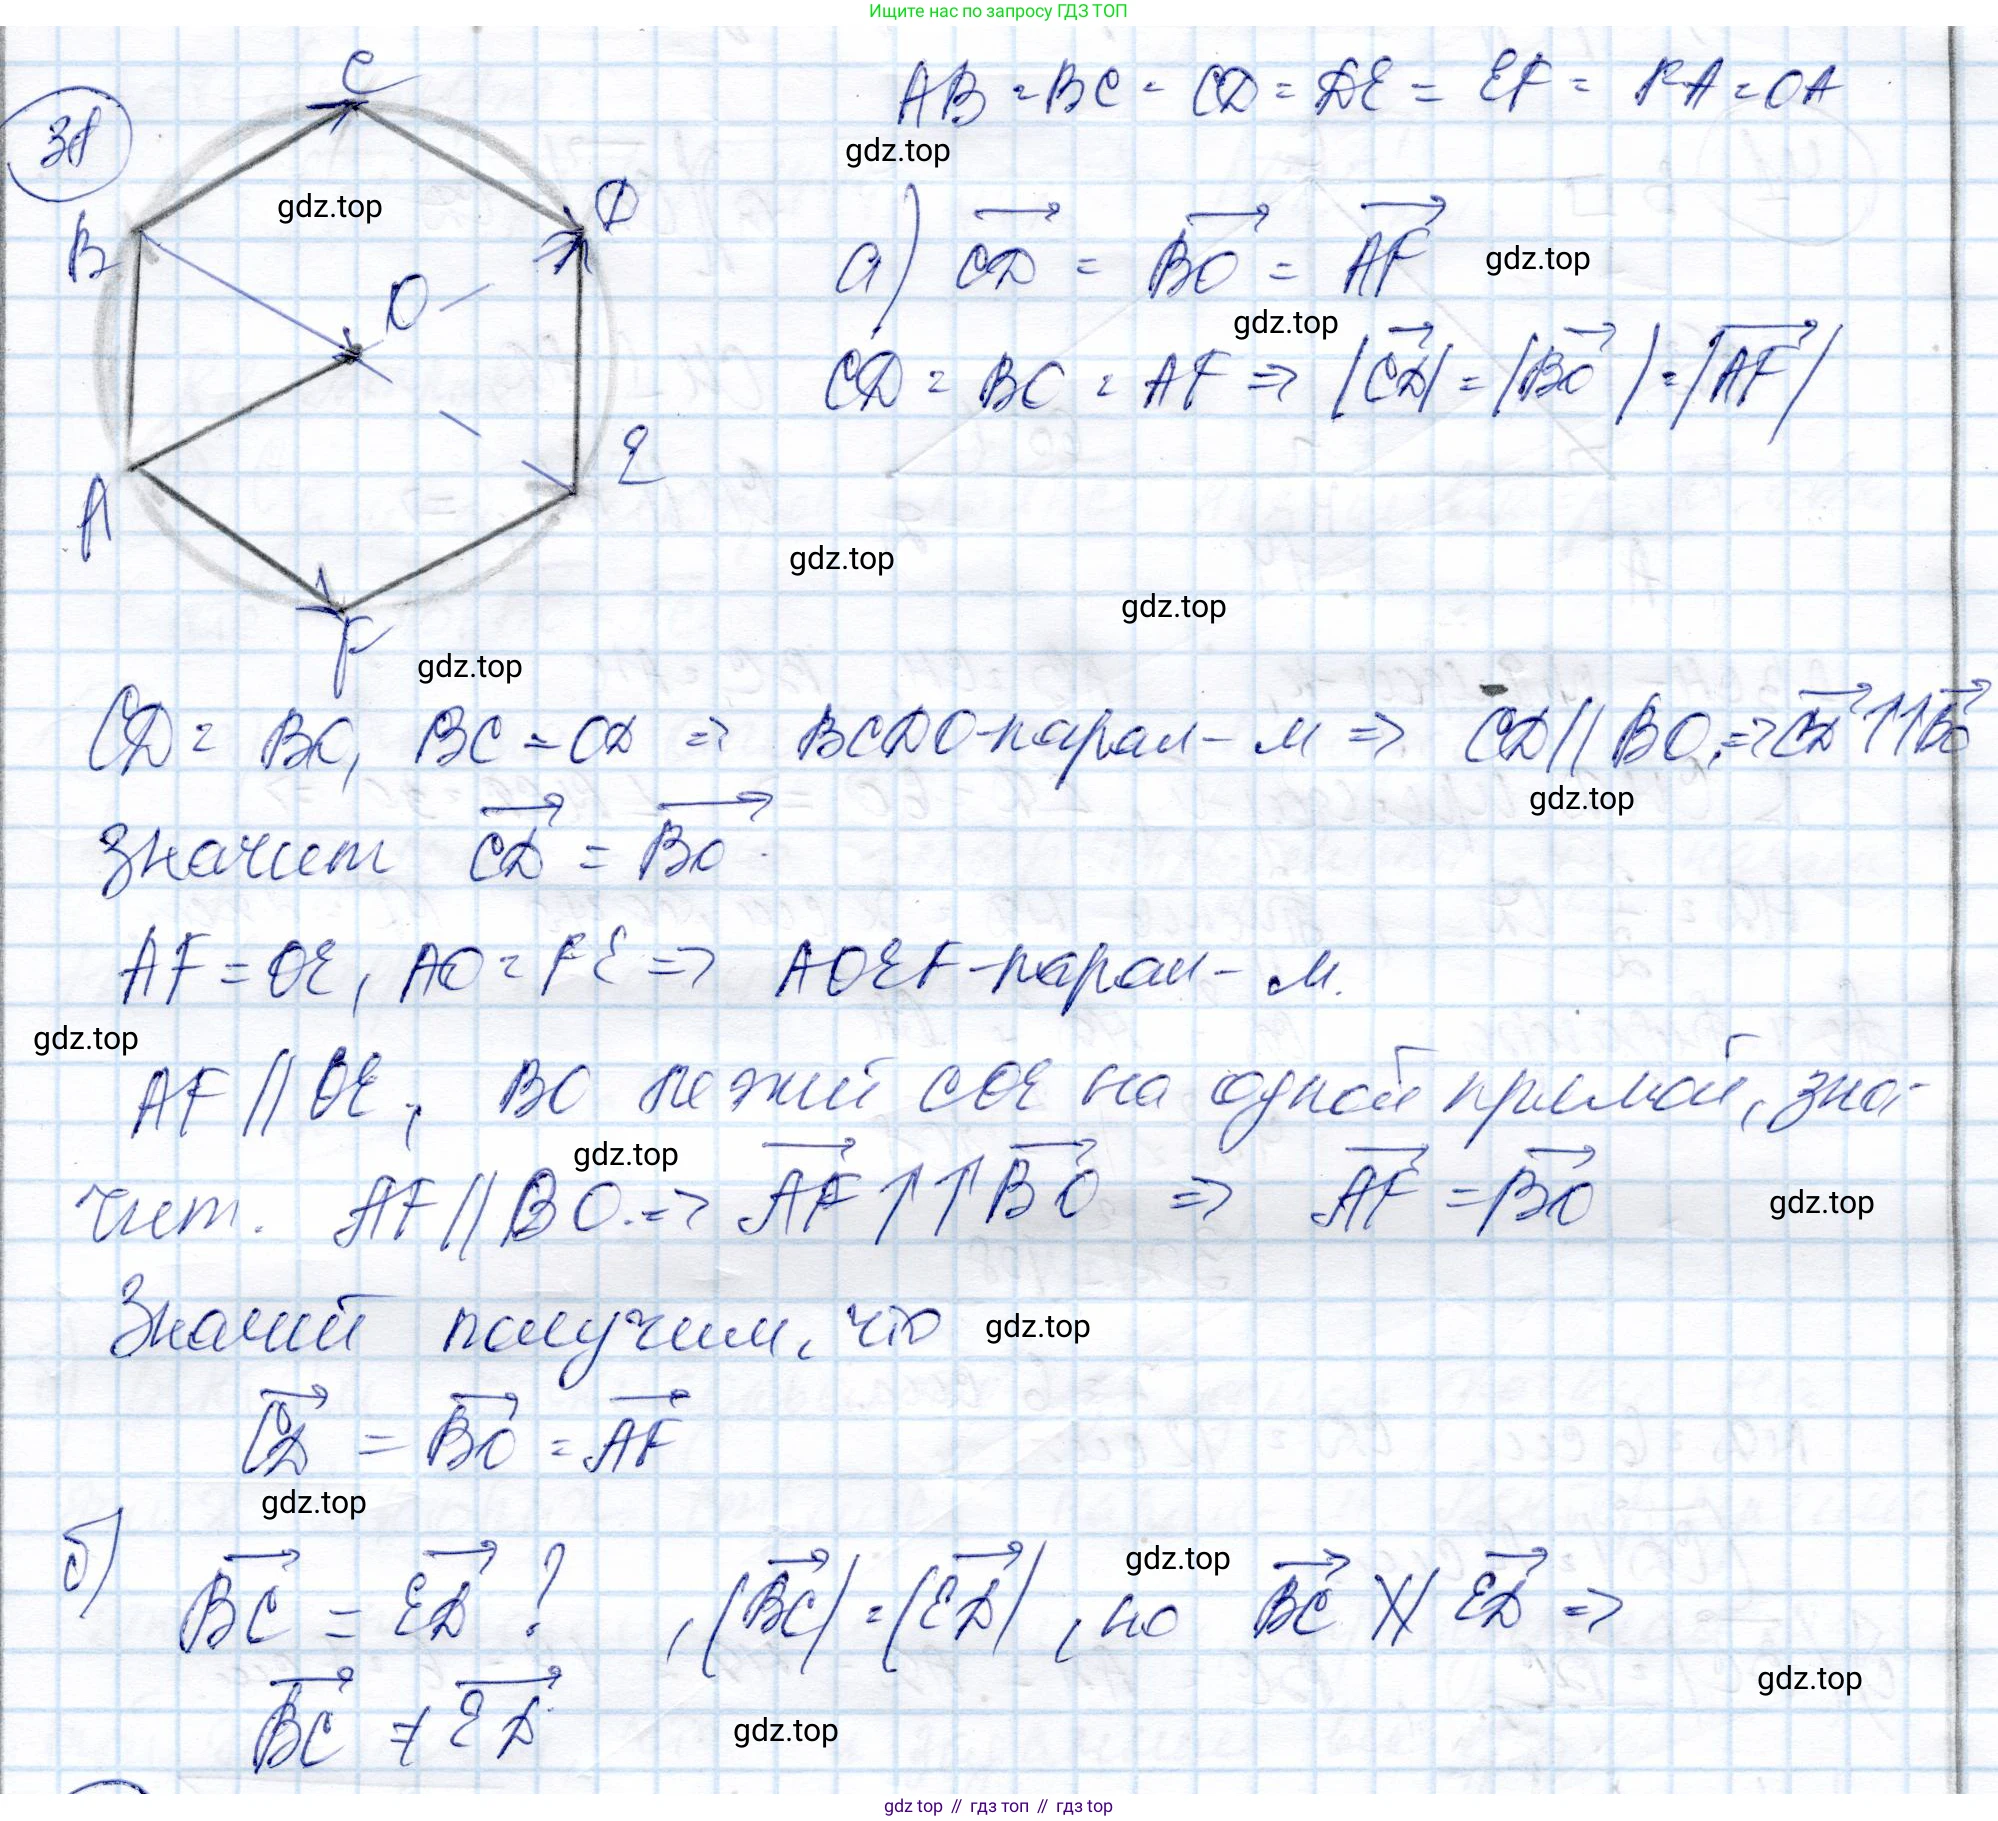 Ищите нас по запросу ГДЗ ТОП
38
C
B
D
O
A
E
F
AB = BC = CD = DE = EF = FA = OA
gdz.top
gdz.top
а) CD = BO = AF
gdz.top
gdz.top
CD = BO = AF => |CD| = |BO| = |AF|
gdz.top
gdz.top
gdz.top
CD = BO, BC = OD => BCDO-парал-м => CD || BO, => CD ↑↑ BO
gdz.top
значит CD = BO.
AF = OE, AO = FE => AOEF-парал-м.
gdz.top
AF || OE, BO лежит с OE на одной прямой, зна-
gdz.top
чит. AF || BO. => AF ↑↑ BO => AF = BO
gdz.top
Значит получим, что
gdz.top
CD = BO = AF
gdz.top
б) BC = ED ? , |BC| = |ED|, но BC ∦ ED =>
gdz.top
BC ≠ ED
gdz.top
gdz.top
gdz top // гдз топ // гдз top